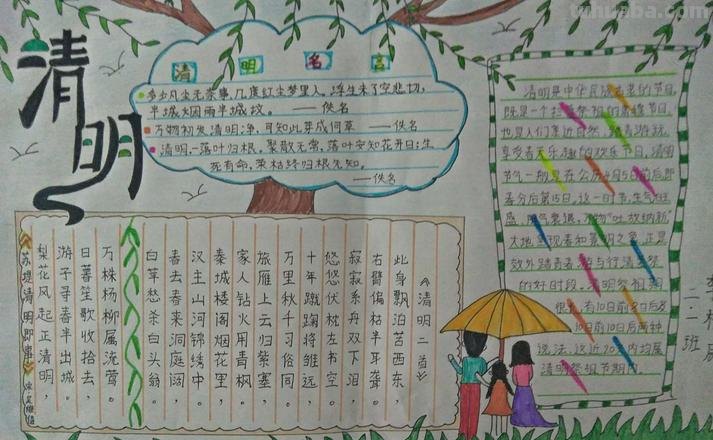 tuhuaba.com
清明
清明名言
多少风尘无家事,几度红尘梦里人,浮生未了空悲切,
半城烟雨半城坟。——佚名
万物初发清明净,可知此草成何草——佚名
清明,一落叶归根,聚散无常,落叶安知花开日;生
死有命,荣枯终归根先知。
——佚名
清明是中华民族古老的节日,
既是一个扫墓祭祖的肃穆节日,
也是人们亲近自然、踏青游玩、
享受春天乐趣的欢乐节日,清明
节气一般是在公历4月5日前后即
春分后第15日,这一时节,生气旺
盛、阴气衰退,万物“吐故纳新”
大地呈现春和景明之象,正是
郊外踏青春游与行清墓祭
的好时段。清明祭祖期
很长,有10日前8日后及
10日前10日后两种
说法,这近20天内均属
清明祭祖节期内。
李
二林
二班
《清明二首》
此身飘泊苦西东,
右臂偏枯半耳聋。
寂寂系舟双下泪,
悠悠伏枕左书空。
十年蹴踘将雏远,
万里秋千习俗同。
旅雁上云归紫塞,
家人钻火用青枫。
秦城楼阁烟花里,
汉主山河锦绣中。
春去春来洞庭阔,
白苹愁杀白头翁。
万株杨柳属流莺。
日暮笙歌收拾去,
游子寻春半出城。
梨花风起正清明,
《苏堤清明即事》